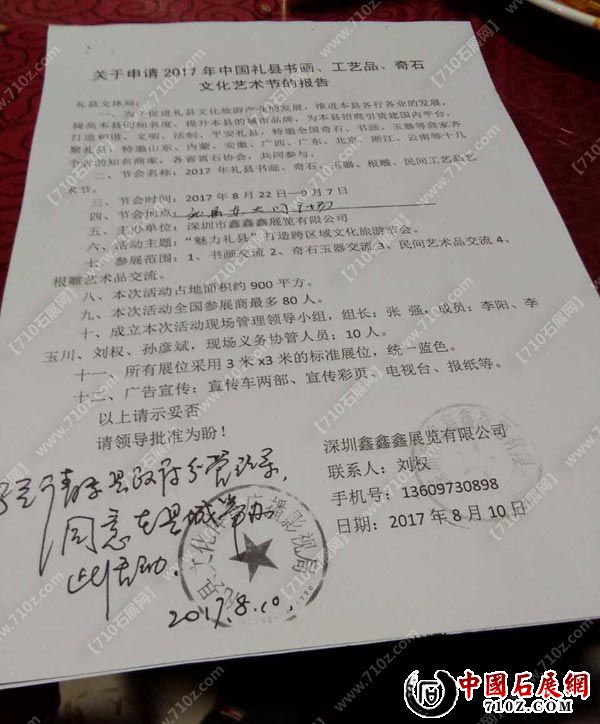 关于申请 2017 年中国礼县书画、工艺品、奇石
文化艺术节的报告
礼县文体局:
一、为了促进礼县文化旅游产业的发展,推进本县各行各业的发展,
提高本县的知名度,提升本县的城市品牌,为本县招商引资建国内平台,
打造和谐、文明、法制、平安礼县,特邀全国奇石、书画、玉器等商家齐
聚礼县,特邀山东、内蒙、安徽、广西、广东、北京、浙江、云南等十几
个省的知名商家,各省富石协会,共同参与。
二、节会名称:2017 年礼县书画、奇石、玉器、根雕、民间工艺品艺
术节。
三、节会时间:2017 年 8 月 22 日—9 月 7 日
四、节会地点:
五、主办单位:深圳市鑫鑫鑫展览有限公司
六、活动主题:“魅力礼县”打造跨区域文化旅游节会。
七、参展范围:1、书画交流 2、奇石玉器交流 3、民间艺术品交流 4、
根雕艺术品交流。
八、本次活动占地面积约 900 平方。
九、本次活动全国参展商最多 80 人。
十、成立本次活动现场管理领导小组,组长:张 强,成员:李阳、李
玉川、刘权、孙彦斌,现场义务协管人员:10 人。
十一、所有展位采用 3 米 x3 米的标准展位,统一蓝色。
十二、广告宣传:宣传车两部、宣传彩页、电视台、报纸等。
以上请示妥否
请领导批准为盼!
深圳鑫鑫鑫展览有限公司
联系人:刘权
手机号:13609730898
日期:2017 年 8 月 10 日
请示县政府分管领导,
同意在县城举办
此活动.
2017.8.10.
【710石展网】
www.710z.com
中國石展網
710Z.COM